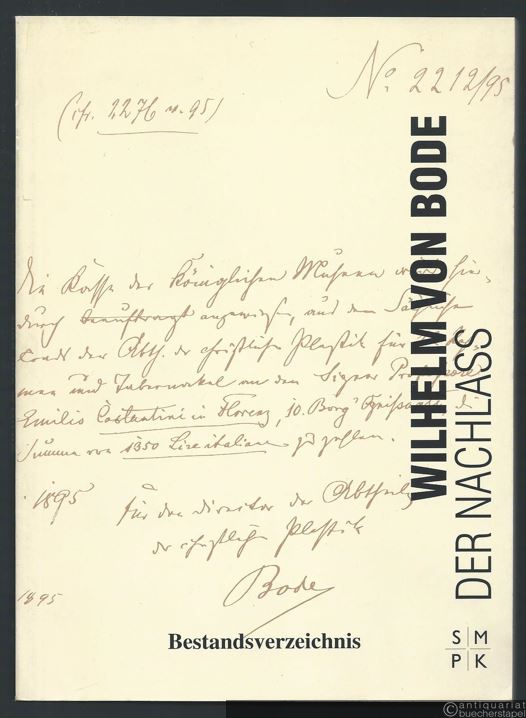 No. 2212/95
(cfr. 2276 u. 95)
Die Kasse der Königlichen Museen wird hier-
durch beauftragt angewiesen, aus dem Sächlichen
Fonds der Abth. der christlichen Plastik für
und Tabernakel an den Signor Professore
Emilio Costantini in Florenz, 10. Borg' die
Summe von 1350 Lire italiane zu zahlen.
1895
Für den Director der Abtheilg
der christlichen Plastik
Bode
1895
WILHELM VON BODE
DER NACHLASS
Bestandsverzeichnis
S M
P K
©antiquariat
buecherstapel